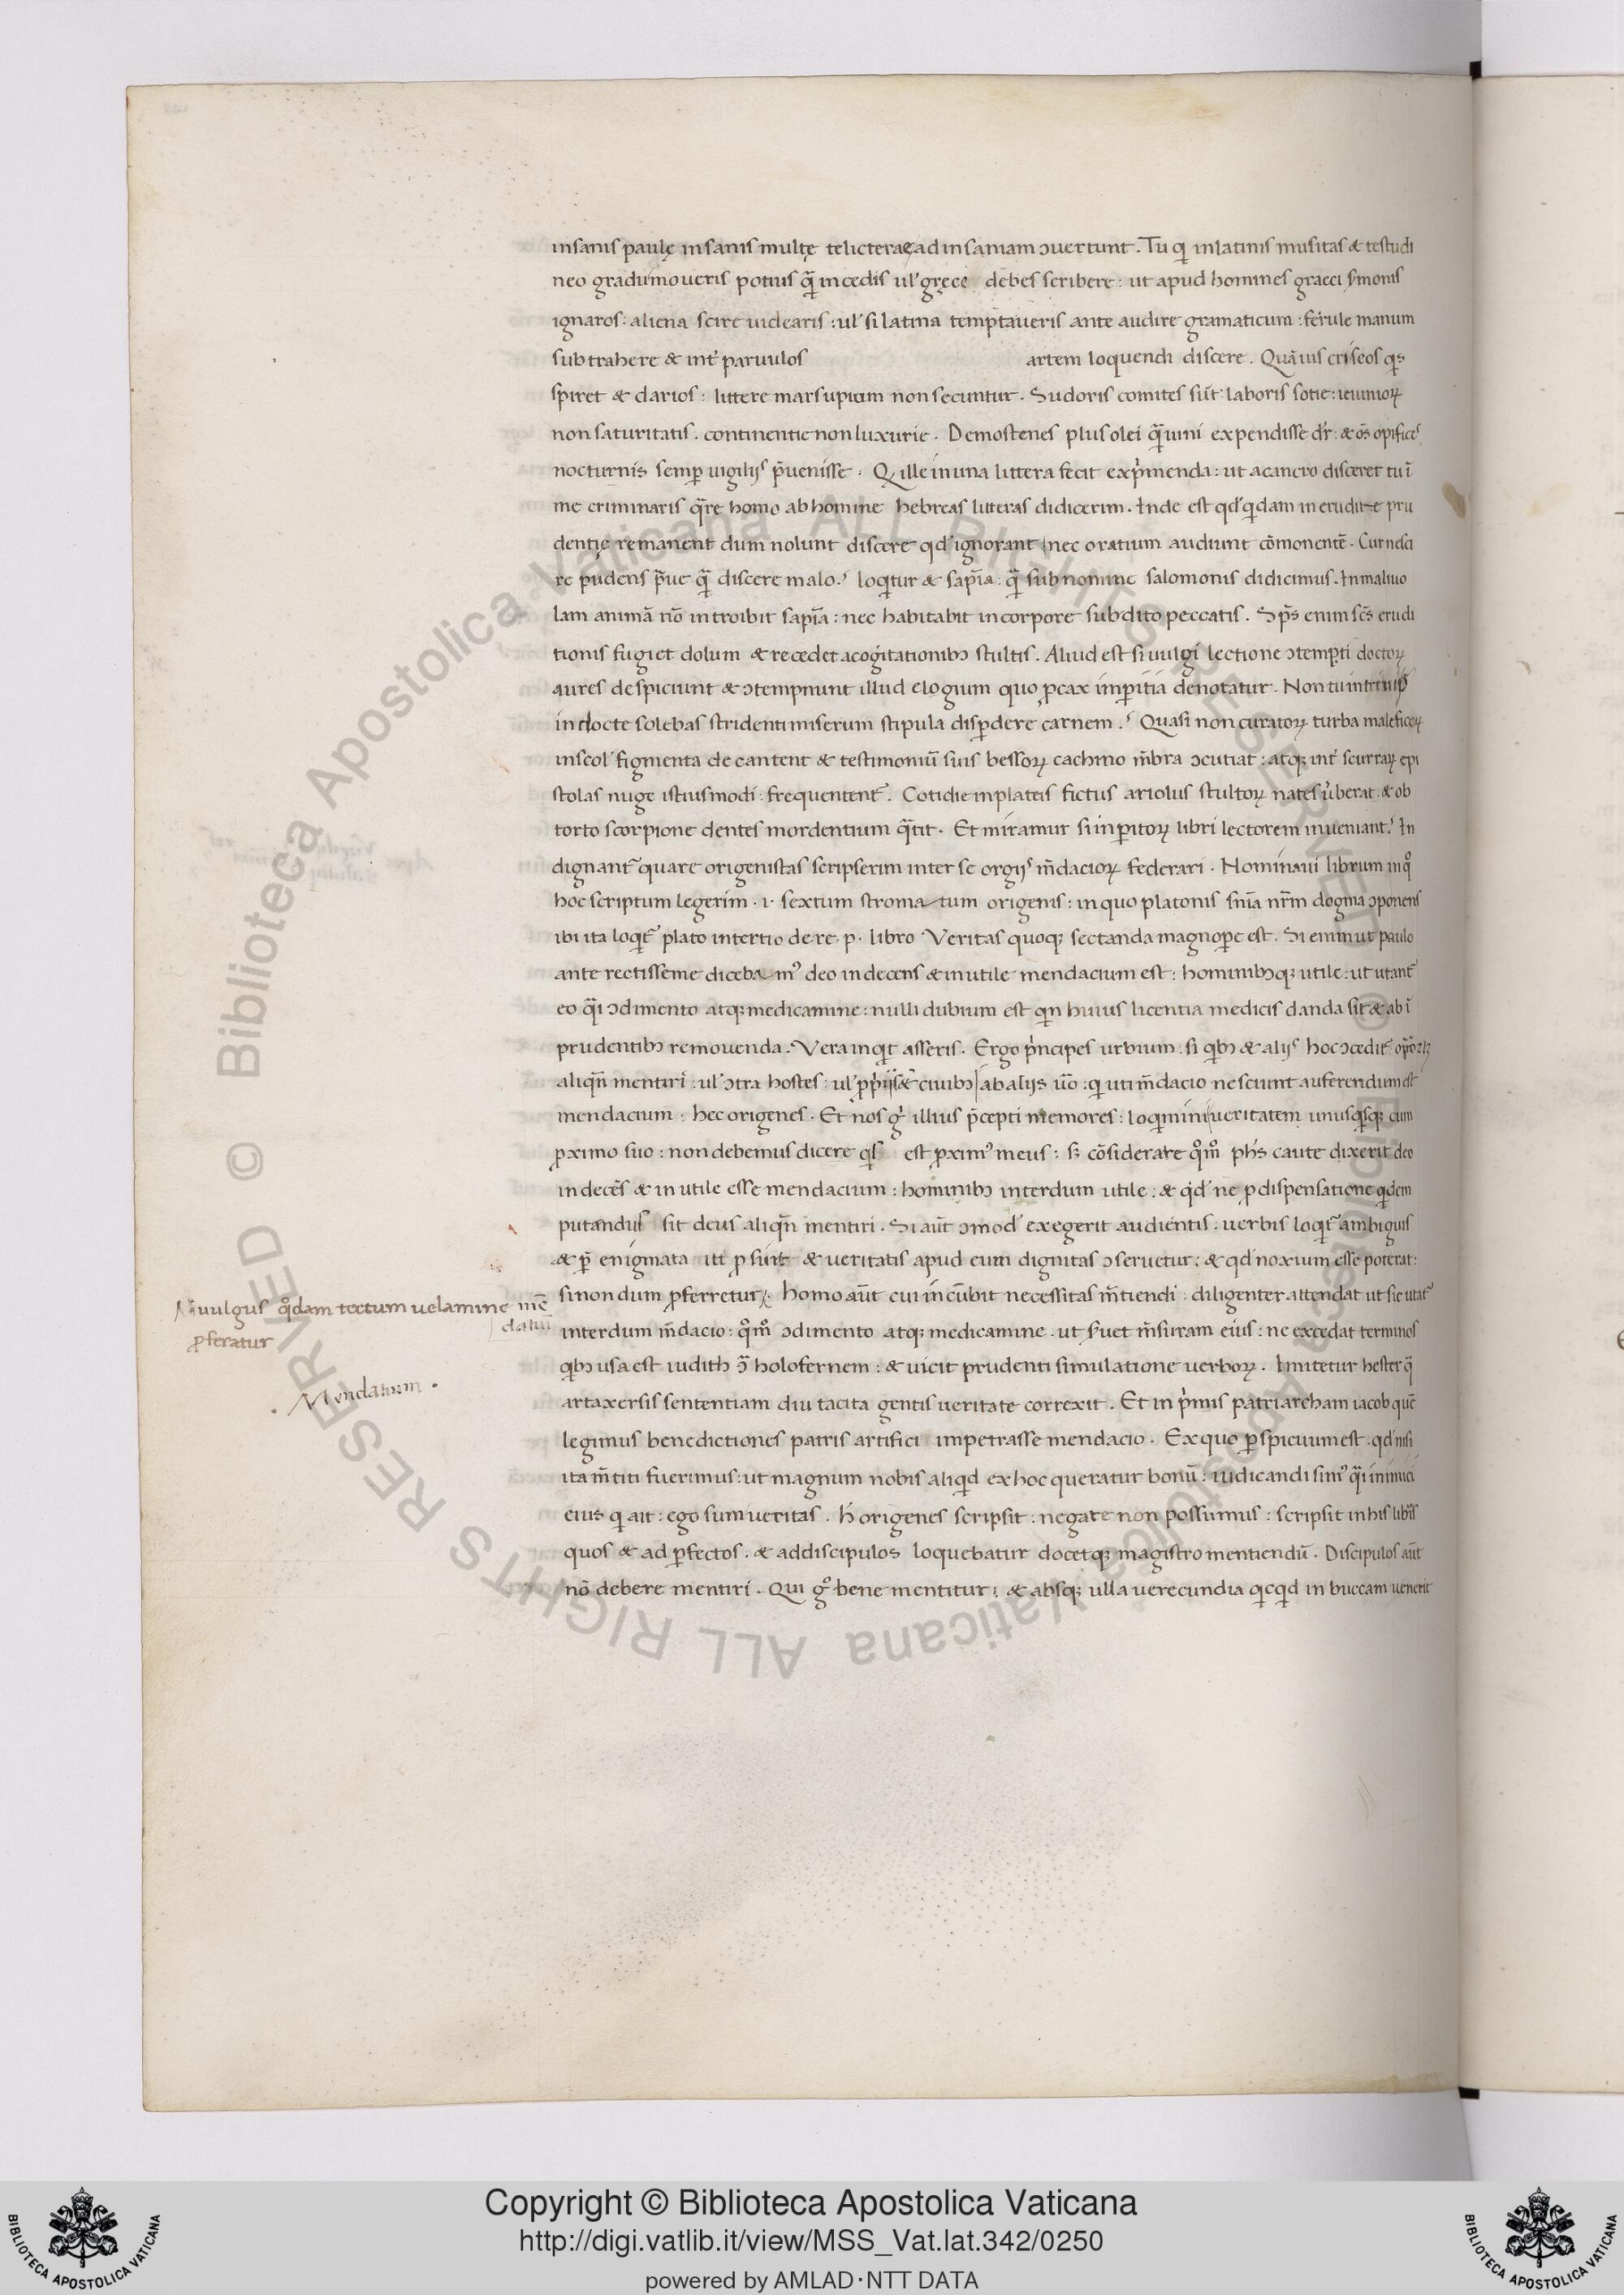 insanis paulę in sanis multę te licterae ad insaniam ↄuertunt. Tu qͥ in latinis musitas & testudi
neo gradu moueris potius qͣ̄ incedis ul' gręce debes scribere: ut apud homines graeci s̓monis
ignaros: aliena scire uidearis: ul' si latina temptaueris ante audire gramaticum: ferule manum
subtrahere & int̓ paruulos artem loquendi discere. Quāuis criseos qͥs
spiret & darios: littere marsupium non secuntur. Sudoris comites sūt laboris sotie: ieiunioꝝ
non saturitatis. continentie non luxurie. Demostenes plus olei qͣ̄ uini expendisse dr̄: & oēs opifices
nocturnis semꝑ uigilijs p̄uenisse. Q ille in una littera fecit exp̓menda: ut a cancro disceret tu ī
me criminaris qͣre homo ab homine hebreas litteras didicerim. Inde est qd' qͥdam inerudite pru
dentię remanent dum nolunt discere qd' ignorant nec oratium audiunt cōmonentē. Cur nesci
re pudens p̄ue qͣ̄ discere malo? loqͥtur & sapīa: qͣ̄ sub nomine salomonis didicimus. In maliuo
lam animā nō introibit sapīa: nec habitabit in corpore subdito peccatis. Sp̄s enim sc̄s erudi
tionis fugiet dolum & recedet a cogitationibꝫ stultis. Aliud est si uulgi lectione ↄtempti doctoꝝ
aures despiciunt & ↄtempnunt illud elogium quo ꝓcax imꝑitia denotatur. Non tu in triuijs
indocte solebas stridenti miserum stipula disꝑdere carmen? Quasi non curatoꝝ turba maleficoꝝ
in scol' figmenta decantent & testimoniū suis bessoꝝ cachino m̄bra ↄcutiat: atqꝫ int̓ scurraꝝ epi
stolas nuge istiusmodi: frequentent̄. Cotidie in plateis fictus ariolus stultoꝝ nates u̓berat. & ob
torto scorpione dentes mordentium qͣtit. Et miramur si inꝑitoꝝ libri lectorem inueniant? In
dignant̄ quare origenistas scripserim inter se orgijs m̄dacioꝝ federari. Nominaui librum in qͦ
hoc scriptum legerim. i. sextum stromatum origenis: in quo platonis sn̄ia nr̄m dogma ↄponens
ibi ita loqͥt̄ plato in tertio de. re. p. libro Veritas quoqꝫ sectanda magnoꝑe est. Si enim ut paulo
ante rectisseme dicebam᾿ deo indecens & inutile mendacium est: hominibꝫqꝫ utile: ut utant̄
eo qͣi ↄdimento atqꝫ medicamine: nulli dubium est qͥn huius licentia medicis danda sit & ab ī
prudentibꝫ remouenda. Vera inqͥt asseris. Ergo p̓ncipes urbium: si qͥbꝫ & alijs hoc ↄcedit̄ oportꝫ
aliqn̄ mentiri: ul' ↄtra hostes: ul' ꝓ patria & ciuibꝫ ab alijs ūo: qͥ uti m̄dacio nesciunt auferendum est
mendacium: hec origenes. Et nos gͥ illius p̄cepti memores: loqͥmini ueritatem unusqͥsqꝫ cum
ꝓximo suo: non debemus dicere qͥs est ꝓxim᾿ meus: sꝫ cōsiderare qͦmͦ ph̄s caute dixerit deo
indecēs & inutile esse mendacium: hominibꝫ interdum utile: & qͥd' ne ꝓ dispensatione qͥdem
putandus sit deus aliqn̄ mentiri. Si aūt ↄmod' exegerit audientis: uerbis loqͥt̄ ambiguis
& ꝑ enigmata ut ꝓsint & ueritatis apud eum dignitas ↄseruetur: & qd' noxium esse poterat:
si nondum ꝓferretur. homo aūt cui incūbit necessitas m̄tiendi: diligenter attendat ut sic utat̄
interdum m̄dacio: qͦmͦ ↄdimento atqꝫ medicamine. ut s̓uet m̄suram eius: ne excedat terminos
qͥbꝫ usa est iudith ↄͣ holofernem: & uicit prudenti simulatione uerboꝝ. Imitetur hester q̄
artaxersis sententiam diu tacita gentis ueritate correxit. Et in p̓mis patriarcham iacob quē
legimus benedictiones patris artifici impetrasse mendacio. Ex quo ꝑspicuum est. qd' nisi
ita m̄titi fuerimus: ut magnum nobis aliqͥd ex hoc queratur bonū: iudicandi sim᾿ qͣi inimici
eius qͥ ait: ego sum ueritas. h̓ origenes scripsit: negare non possumus: scripsit in his libris
quos & ad ꝑfectos. & ad discipulos loquebatur docetqꝫ magistro mentiendū. Discipulos aūt
nō debere mentiri. Qui gͦ bene mentitur: & absqꝫ ulla uerecundia qͥcqͥd in buccam uenerit
uulgus qͦdam tectum uelamine mē
daciū
ꝓferatur
. Mendatium .
Copyright © Biblioteca Apostolica Vaticana
http://digi.vatlib.it/view/MSS_Vat.lat.342/0250
powered by AMLAD·NTT DATA
BIBLIOTECA APOSTOLICA VATICANA
BIBLIOTECA APOSTOLICA VATICANA
© Biblioteca Apostolica Vaticana ALL RIGHTS RESERVED © Biblioteca Apostolica Vaticana ALL RIGHTS RESERVED